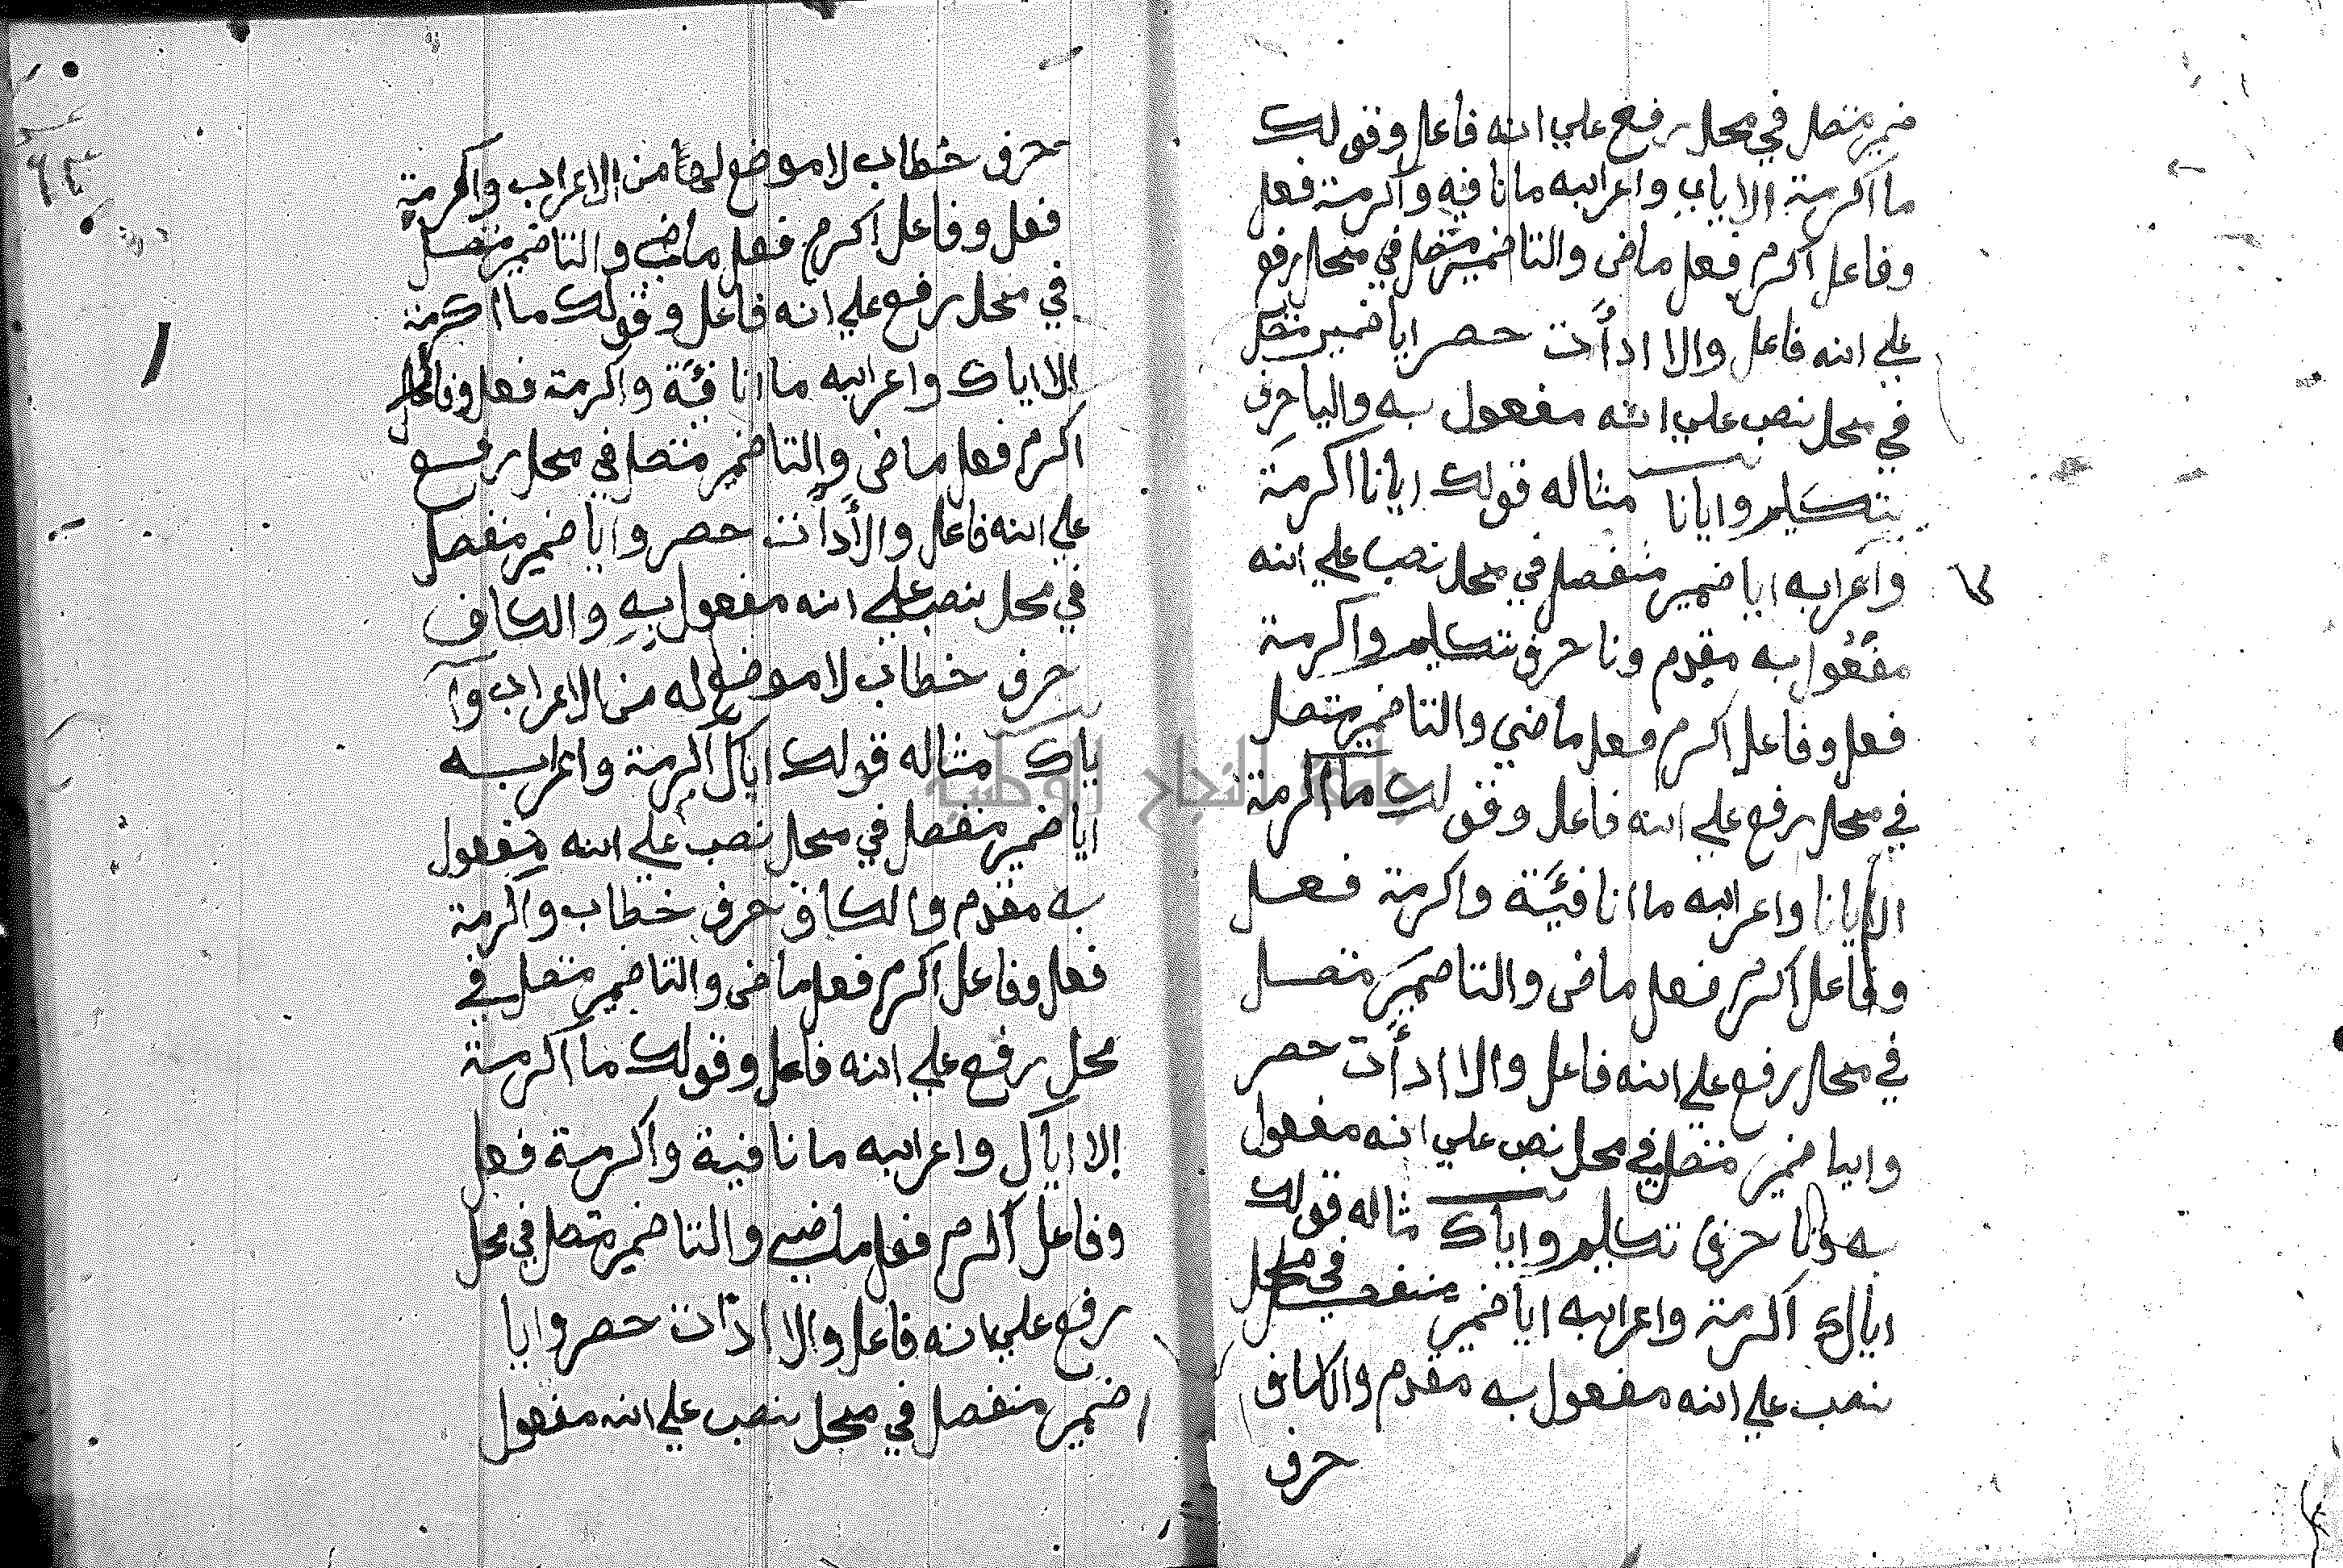 ضمير متصل في محل رفع علي انه فاعل وقولك
ما اكرمة الاياي واعرابه ما نافيه واكرمة فعل
وفاعل اكرم فعل ماضى والتا ضمير متصل في محل رفع
علي انه فاعل والا ادأت حصر ايا ضمير منفصل
في محل نصب علي انه مفعول به واليا حرف
تتكيلم وايانا مثاله قولك ايانا اكرمة
واعرابه ايا ضمير منفصل في محل نصب علي انه
مفعول به مقدم ونا حرف تتكيلم واكرمة
فعل وفاعل اكرم فعل ماضي والتا ضمير متصل
في محل رفع علي انه فاعل وقولك ما اكرمة
الا ايانا واعرابه ما انافئية واكرمة فعل
وفاعل اكرم فعل ماضى والتا ضمير متصل
في محل رفع علي انه فاعل والا ادأت حصر
وايا ضمير متصل في محل نصب علي انه مفعول
به ونا حرف تتكيلم واياك مثاله قولك
اياك اكرمة واعرابه ايا ضمير منفصل في محل
نصب علي انه مفعول به مقدم والكاف
حرف
حرف خطاب لا موضع لها من الاعراب واكرمة
فعل وفاعل اكرم فعل ماضي والتا ضمير متصل
في محل رفع علي انه فاعل وقولك ما اكرمة
الا اياك واعرابه ما انافئة واكرمة فعل وفاعل
اكرم فعل ماضى والتا ضمير متصل في محل رفع
علي انه فاعل والا أدأت حصر وايا ضمير منفصل
في محل نصب علي انه مفعول به والكاف
حرف خطاب لا موضع له من الاعراب وا
ياك مثاله قولك اياك اكرمة واعرابه
ايا ضمير منفصل في محل نصب علي انه مفعول
به مقدم والكاف حرف خطاب واكرمة
فعل وفاعل اكرم فعل ماضى والتا ضمير متصل في
محل رفع علي انه فاعل وقولك ما اكرمة
الا اياك واعرابه ما نافية واكرمة فعل
وفاعل اكرم فعل ماضي والتا ضمير متصل في محل
رفع علي انه فاعل والا ادآت حصر وايا
ضمير منفصل في محل نصب علي انه مفعول
جامعة النجاح الوطنية